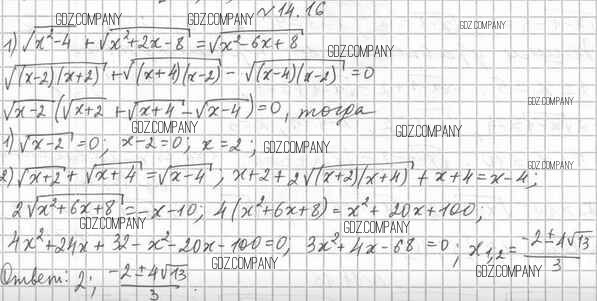 № 14.16
GDZ.COMPANY GDZ.COMPANY GDZ.COMPANY
1) √x²-4 + √x²+2x-8 = √x²-6x+8
GDZ.COMPANY
√(x-2)(x+2) + √(x+4)(x-2) - √(x-4)(x-2) = 0
GDZ.COMPANY
√x-2 (√x+2 + √x+4 - √x-4) = 0, тогда
GDZ.COMPANY GDZ.COMPANY
1) √x-2 = 0; x-2=0; x=2;
GDZ.COMPANY GDZ.COMPANY
2) √x+2 + √x+4 = √x-4; x+2+2√(x+2)(x+4) + x+4 = x-4;
2√x²+6x+8 = -x-10; 4(x²+6x+8) = x²+20x+100;
GDZ.COMPANY GDZ.COMPANY
4x²+24x+32-x²-20x-100=0; 3x²+4x-68=0; x₁,₂ = -2±4√13/3
GDZ.COMPANY GDZ.COMPANY
Ответ: 2; -2±4√13/3.